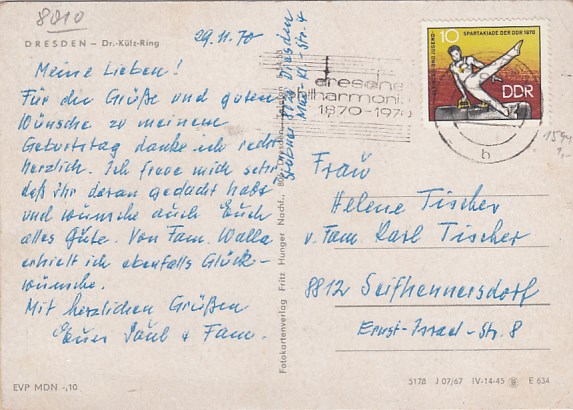 8010
DRESDEN — Dr.-Külz-Ring
29.11.70
Meine Lieben!
Für die Grüße und guten
Wünsche zu meinem
Geburtstag danke ich recht
herzlich. Ich freue mich sehr
daß ihr daran gedacht habt
und wünsche auch Euch
alles Gute. Von Fam. Walla
erhielt ich ebenfalls Glück-
wünsche.
Mit herzlichen Grüßen
Euer Paul & Fam.
EVP MDN -,10
Fotokartenverlag Fritz Hunger Nachf.,
8020 Dresden
dresdner
philharmonie
1870-1970
10
SPARTAKIADE DER DDR 1970
DDR
h
Frau
Helene Tischer
v. Fam. Karl Tischer
8812 Seifhennersdorf
Ernst-Israel-Str. 8
5178 J 07/67 IV-14-45 E 634